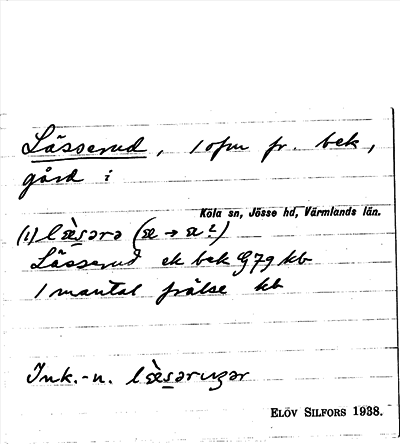 Lässerud, 1 ofm fr. bek,
gård i
Köla sn, Jösse hd, Värmlands län.
(1) læ̀sərə (æ → a²)
Lässerud ek bek G79 kb
1 mantal frälse kb
Ink.-n. læ̀səruɡər
ELÖV SILFORS 1938.